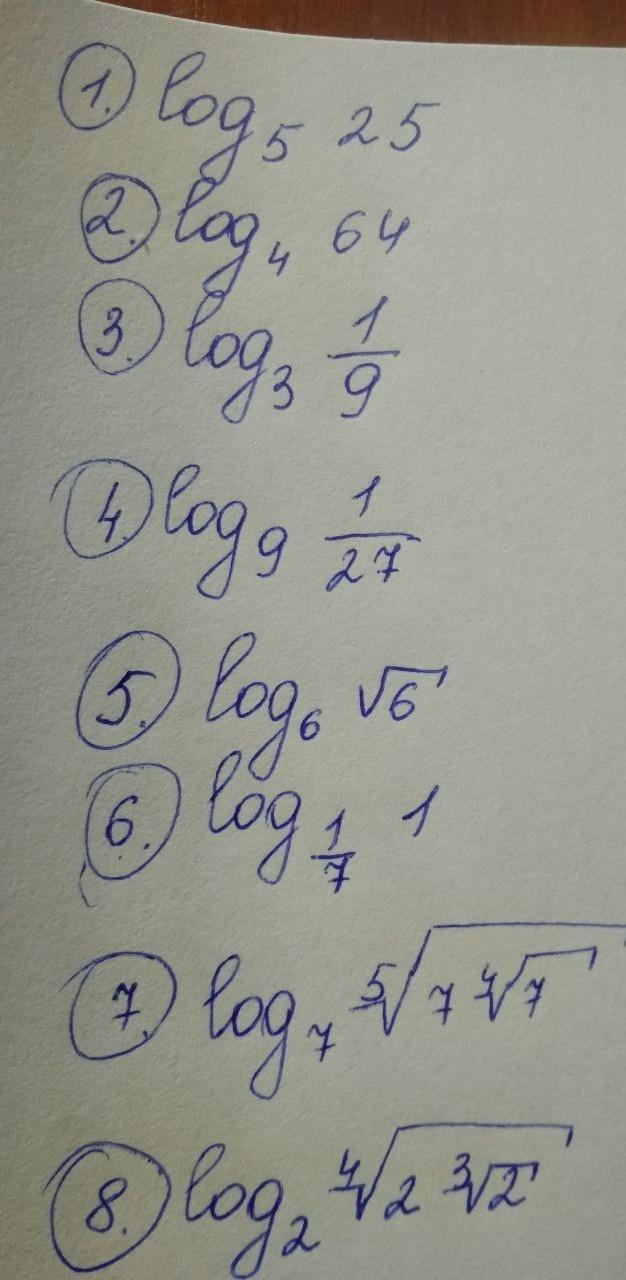 1. log₅ 25
2. log₄ 64
3. log₃ 1/9
4. log₉ 1/27
5. log₆ √6
6. log_(1/7) 1
7. log₇ ⁵√(7 ⁴√7)
8. log₂ ⁴√(2 ³√2)